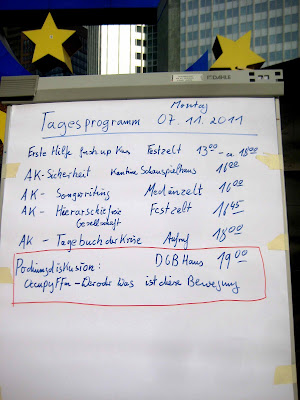 DAHLE
Montag
Tagesprogramm 07.11.2011
Erste Hilfe fresh up Kurs Festzelt 13⁰⁰ - ca. 15⁰⁰
AK - Sicherheit Kantine Schauspielhaus 16⁰⁰
AK - Songwriting Medienzelt 16⁰⁰
AK - Hierarchiefreie Festzelt 16⁴⁵
Gesellschaft
AK - Tagebuch der Krise Aufruf 18⁰⁰
Podiumsdiskusion: DGB Haus 19⁰⁰
OccupyFfm - Wer oder Was ist diese Bewegung